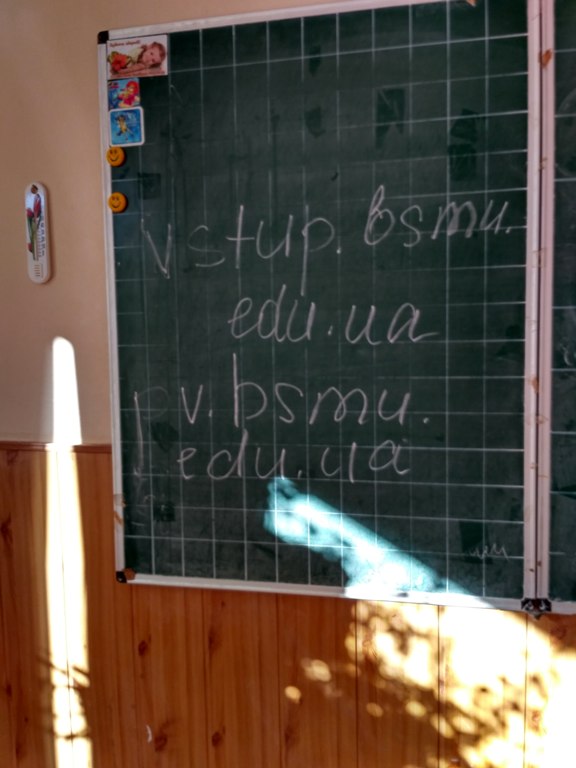 vstup.bsmu.
edu.ua
pv.bsmu.
edu.ua